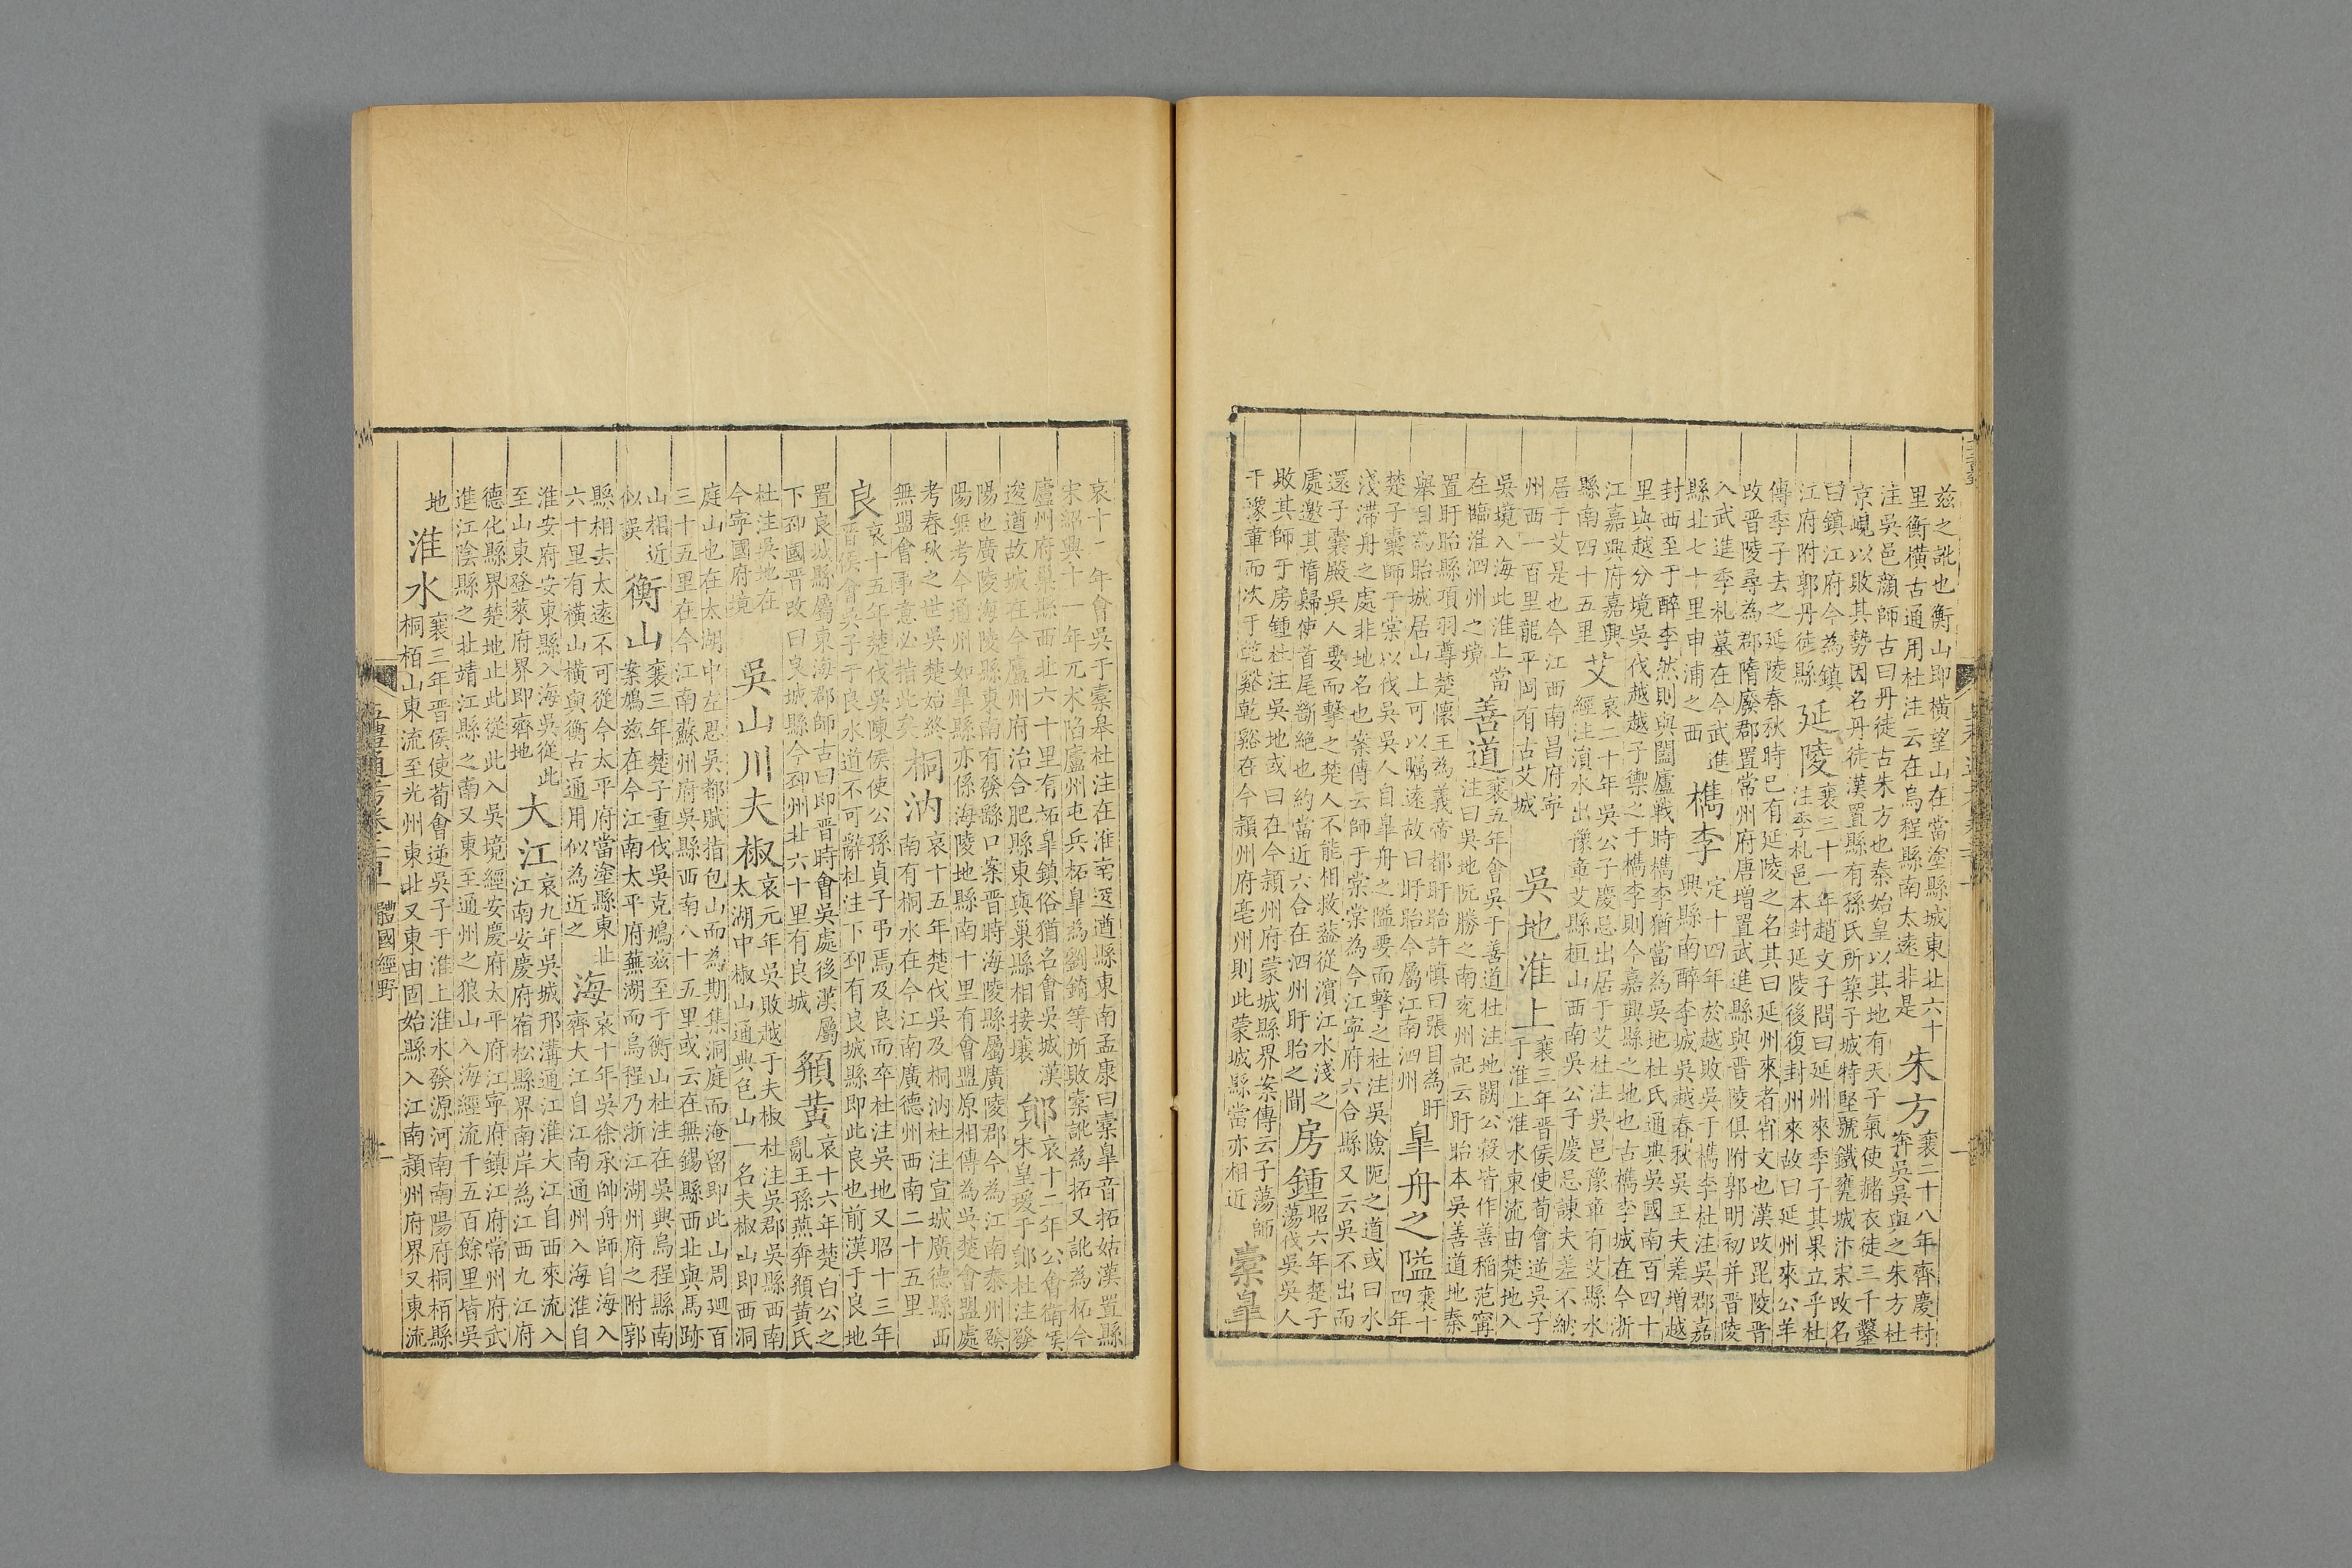 兹之訛也衡山即橫望山在當塗縣城東北六十
里衡橫古通用杜注云在烏程縣南太遠非是
朱方
襄二十八年齊慶封
奔吳吳與之朱方杜
注吳邑顏師古曰丹徒古朱方也秦始皇以其地有天子氣使赭衣徒三千鑿
京峴以敗其勢因名丹徒漢置縣有孫氏所築子城特堅號鐵甕城汴宋改名
曰鎮江府今為鎮
江府附郭丹徒縣
延陵
襄三十一年趙文子問曰延州來季子其果立乎杜
注季札邑本封延陵後復封州來故曰延州來公羊
傳季子去之延陵春秋時已有延陵之名其曰延州來者省文也漢改毘陵晉
改晉陵尋為郡隋廢郡置常州府唐增置武進縣與晉陵俱附郭明初并晉陵
入武進季札墓在今武進
縣北七十里申浦之西
檇李
定十四年於越敗吳于檇李杜注吳郡嘉
興縣南醉李城吳越春秋吳王夫差增越
封西至于醉李然則與闔廬戰時檇李猶當為吳地杜氏通典吳國南百四十
里與越分境吳伐越越子禦之于檇李則今嘉興縣之地也古檇李城在今浙
江嘉興府嘉興
縣南四十五里
艾
哀二十年吳公子慶忌出居于艾杜注吳邑豫章有艾縣水
經注湞水出豫章艾縣桓山西南吳公子慶忌諫夫差不納
居于艾是也今江西南昌府寧
州西一百里龍平岡有古艾城
吳地淮上
襄三年晉侯使荀會逆吳子
于淮上淮水東流由楚地入
吳境入海此淮上當
在臨淮泗州之境
善道
襄五年會吳于善道杜注地闕公穀皆作善稻范甯
注曰吳地阮勝之南兗州記云盱眙本吳善道地秦
置盱眙縣項羽尊楚懷王為義帝都盱眙許慎曰張目為盱
舉目為眙城居山上可以矚遠故曰盱眙今屬江南泗州
皐舟之隘
襄十
四年
楚子囊師于棠以伐吳吳人自皐舟之隘要而擊之杜注吳險阨之道或曰水
淺滯舟之處非地名也案傳云師于棠棠為今江寧府六合縣又云吳不出而
還子囊殿吳人要而擊之楚人不能相救蓋從濱江水淺之
處邀其惰歸使首尾斷絕也約當近六合在泗州盱眙之間
房鍾
昭六年楚子
蕩伐吳吳人
敗其師于房鍾杜注吳地或曰在今潁州府蒙城縣界案傳云子蕩師
于豫章而次于乾谿乾谿在今潁州府亳州則此蒙城縣當亦相近
橐皐
哀十二年會吳于橐皋杜注在淮南逡遒縣東南孟康曰橐皐音拓姑漢置縣
宋紹興十一年兀朮陷廬州屯兵柘皐為劉錡等所敗橐訛為拓又訛為柘今
廬州府巢縣西北六十里有柘皐鎮俗猶名會吳城漢
逡遒故城在今廬州府治合肥縣東與巢縣相接壤
鄖
哀十二年公會衛侯
宋皇瑗于鄖杜注發
陽也廣陵海陵縣東南有發繇口案晉時海陵縣屬廣陵郡今為江南泰州發
陽無考今通州如皐縣亦係海陵地縣南十里有會盟原相傳為吳楚會盟處
考春秋之世吳楚始終
無盟會事意必指此矣
桐汭
哀十五年楚伐吳及桐汭杜注宣城廣德縣西
南有桐水在今江南廣德州西南二十五里
良
哀十五年楚伐吳陳侯使公孫貞子弔焉及良而卒杜注吳地又昭十三年
晉侯會吳子于良水道不可辭杜注下邳有良城縣即此良也前漢于良地
置良城縣屬東海郡師古曰即晉時會吳處後漢屬
下邳國晉改曰良城縣今邳州北六十里有良城
頯黃
哀十六年楚白公之
亂王孫燕奔頯黃氏
杜注吳地在
今寧國府境
吳山川夫椒
哀元年吳敗越于夫椒杜注吳郡吳縣西南
太湖中椒山通典包山一名夫椒山即西洞
庭山也在太湖中左思吳都賦指包山而為期集洞庭而淹留即此山周迴百
三十五里在今江南蘇州府吳縣西南八十五里或云在無錫縣西北與馬跡
山相近
似誤
衡山
襄三年楚子重伐吳克鳩兹至于衡山杜注在吳興烏程縣南
案鳩兹在今江南太平府蕪湖而烏程乃浙江湖州府之附郭
縣相去太遠不可從今太平府當塗縣東北
六十里有橫山橫與衡古通用似為近之
海
哀十年吳徐承帥舟師自海入
齊大江自江南通州入海淮自
淮安府安東縣入海吳從此
至山東登萊府界即齊地
大江
哀九年吳城邗溝通江淮大江自西來流入
江南安慶府宿松縣界南岸為江西九江府
德化縣界楚地止此從此入吳境經安慶府太平府江寧府鎮江府常州府武
進江陰縣之北靖江縣之南又東至通州之狼山入海經流千五百餘里皆吳
地
淮水
襄三年晉侯使荀會逆吳子于淮上淮水發源河南南陽府桐栢縣
桐栢山東流至光州東北又東由固始縣入江南潁州府界又東流
五禮通考卷二百十
體國經野